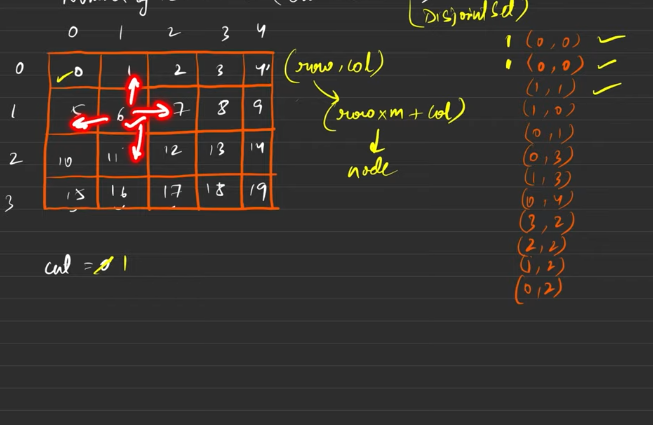 (Disjoint Set)
0 1 2 3 4
0 0 1 2 3 4
1 5 6 7 8 9
2 10 11 12 13 14
3 15 16 17 18 19
(row, col)
(row x m + col)
node
cnt = 0 1
1 (0, 0)
1 (0, 0)
(1, 1)
(1, 0)
(0, 1)
(0, 3)
(1, 3)
(0, 4)
(3, 2)
(2, 2)
(1, 2)
(0, 2)